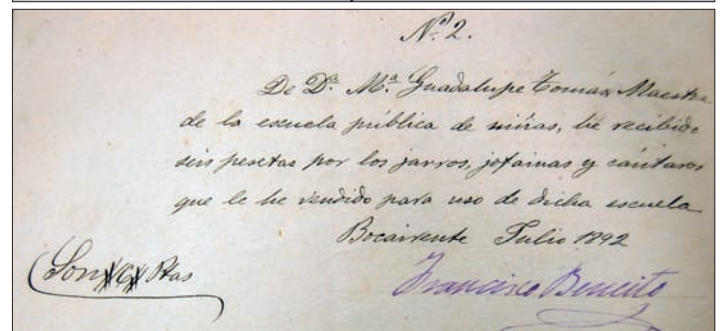 Nº 2.
De Dª. Mª. Guadalupe Tomás, Maestra
de la escuela pública de niñas, he recibido
seis pesetas por los jarros, jofainas y cántaros
que le he vendido para uso de dicha escuela
Bocairente Julio 1892
Son 6 Ptas
Francisco Beneito